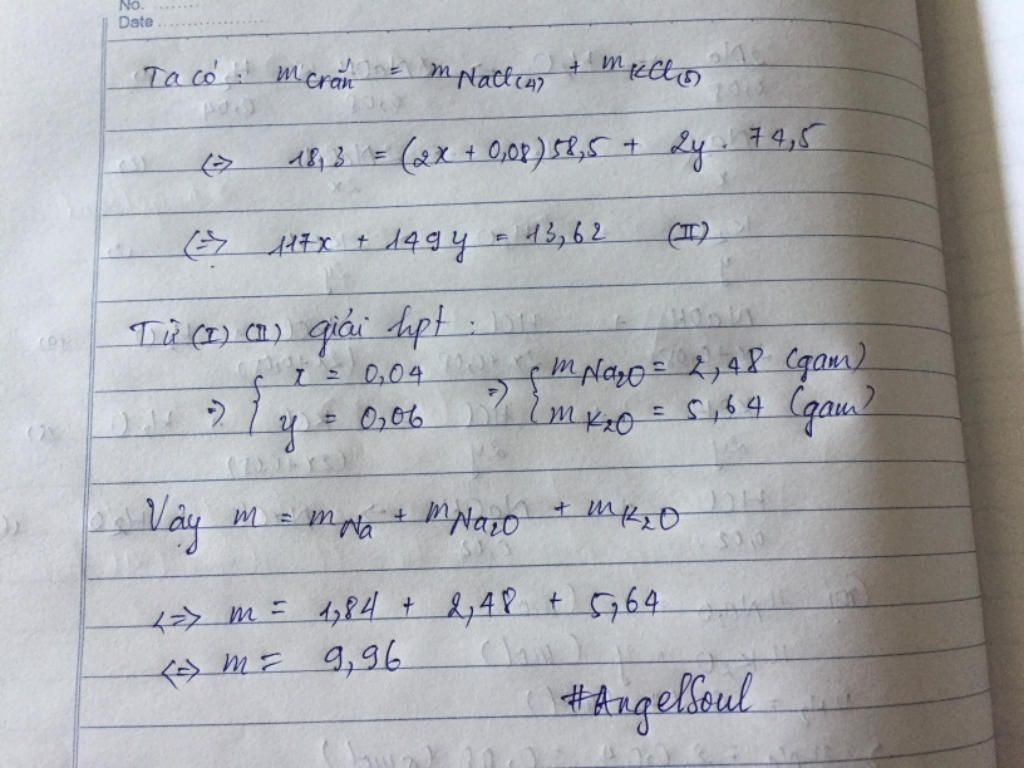 No. ........
Date ....................
Ta có : m crắn = m NaCl(4) + m KCl(5)
<=> 18,3 = (2x + 0,08)58,5 + 2y . 74,5
<=> 117x + 149y = 13,62 (II)
Từ (I) (II) giải hpt :
=> { x = 0,04 => { m Na2O = 2,48 (gam)
y = 0,06 m K2O = 5,64 (gam)
Vậy m = m Na + m Na2O + m K2O
<=> m = 1,84 + 2,48 + 5,64
<=> m = 9,96
#AngelSoul